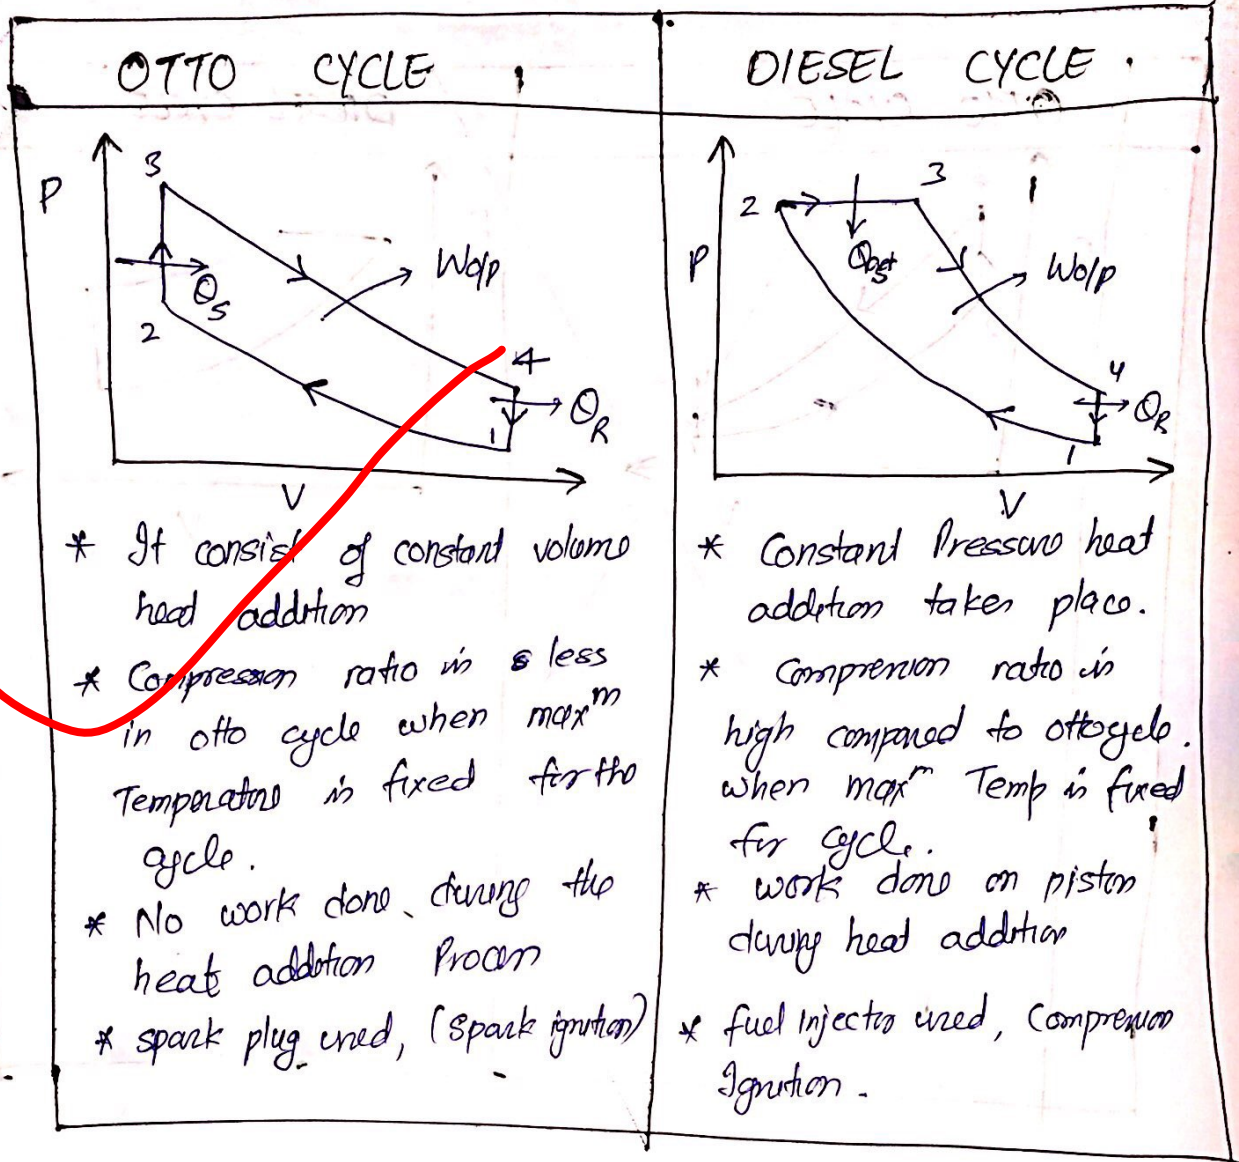 OTTO CYCLE
P
3
Wo/p
Qs
2
4
QR
1
V
* It consist of constant volume
head addition
* Compression ratio is less
in otto cycle when maxm
Temperature is fixed for the
cycle.
* No work done during the
heat addition Process
* spark plug used, (spark ignition)
DIESEL CYCLE
3
2
P
Wo/p
4
QR
1
V
* Constant Pressure heat
addition takes place.
* Compression ratio is
high compared to ottocycle.
when maxm Temp is fixed
for cycle.
* work done on piston
during heat addition
* fuel injector used, Compression
Ignition.